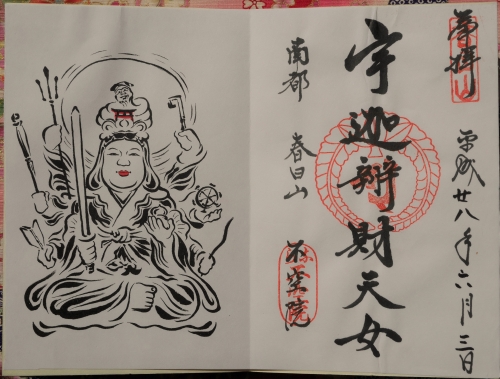 奉拝
平成廿八年六月三日
宇迦辨財天女
南都 春日山
不空院